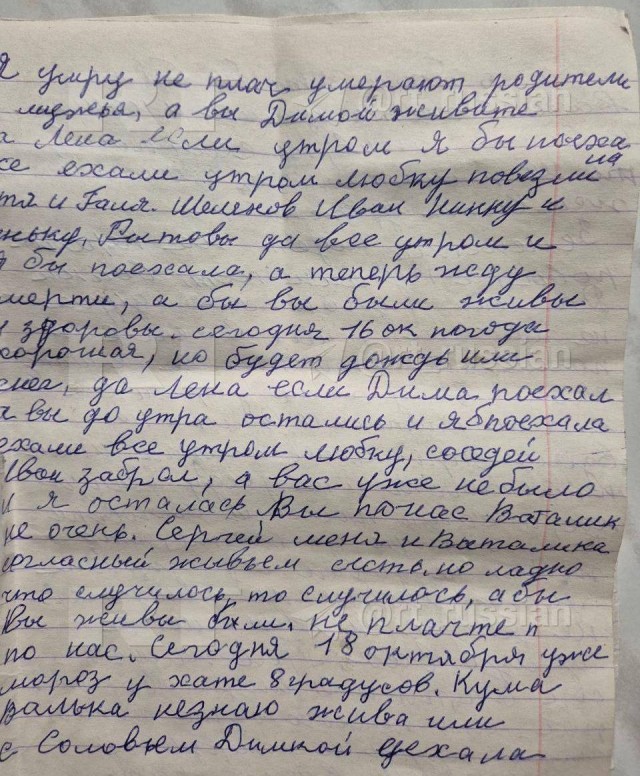 Я умру не плач умерают родители
мужья, а вы Димой живите
а Лена если утром я бы поеха
се ехали утром любку повезли на
тя и Галя. Шеленов Иван Нинку и
нька, Рытовы да все утром и
я бы поехала, а теперь жду
мерти, а бы вы были живы
и здоровы. сегодня 16 ок погода
хорошая, но будет дождь или
снег, да Лена если Дима поехал
а вы до утра остались и я б поехала
ехали все утром любку, соседей
Иван забрал, а вас уже небыло
и я осталась Вы по нас Виталик
не очень. Сергей меня и Виталика
согласный живьем сесть, но ладно
что случилось, то случилось, абы
Вы живы были. не плачте п
по нас. Сегодня 18 октября уже
мороз у хате 8 градусов. Кума
валька незнаю жива или
с Соловьем Димкой уехала
@rt_russian
@rt_russian
@rt_russian